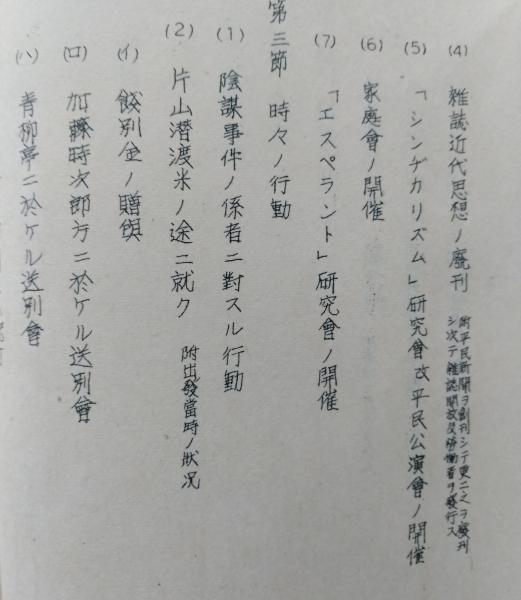 (4) 雑誌近代思想ノ廢刊 附平民新聞ヲ創刊シテ更ニ之ヲ廢刊
シ次テ雑誌開放及労働者ヲ發行ス
(5) 「シンヂカリズム」研究會改平民公演會ノ開催
(6) 家庭會ノ開催
(7) 「エスペラント」研究會ノ開催
第三節 時々ノ行動
(1) 陰謀事件ノ係者ニ對スル行動
(2) 片山潜渡米ノ途ニ就ク 附出發當時ノ狀况
(イ) 餞別金ノ贈與
(ロ) 加藤時次郎方ニ於ケル送別會
(ハ) 青柳亭ニ於ケル送別會